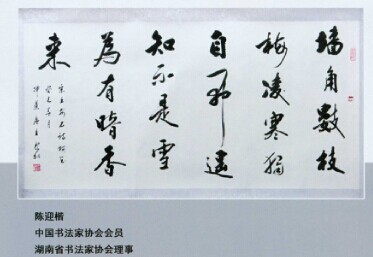 墙角數枝
梅凌寒獨
自開遥
知不是雪
為有暗香
来
宋王安石詩
陈迎楷
中国书法家协会会员
湖南省书法家协会理事